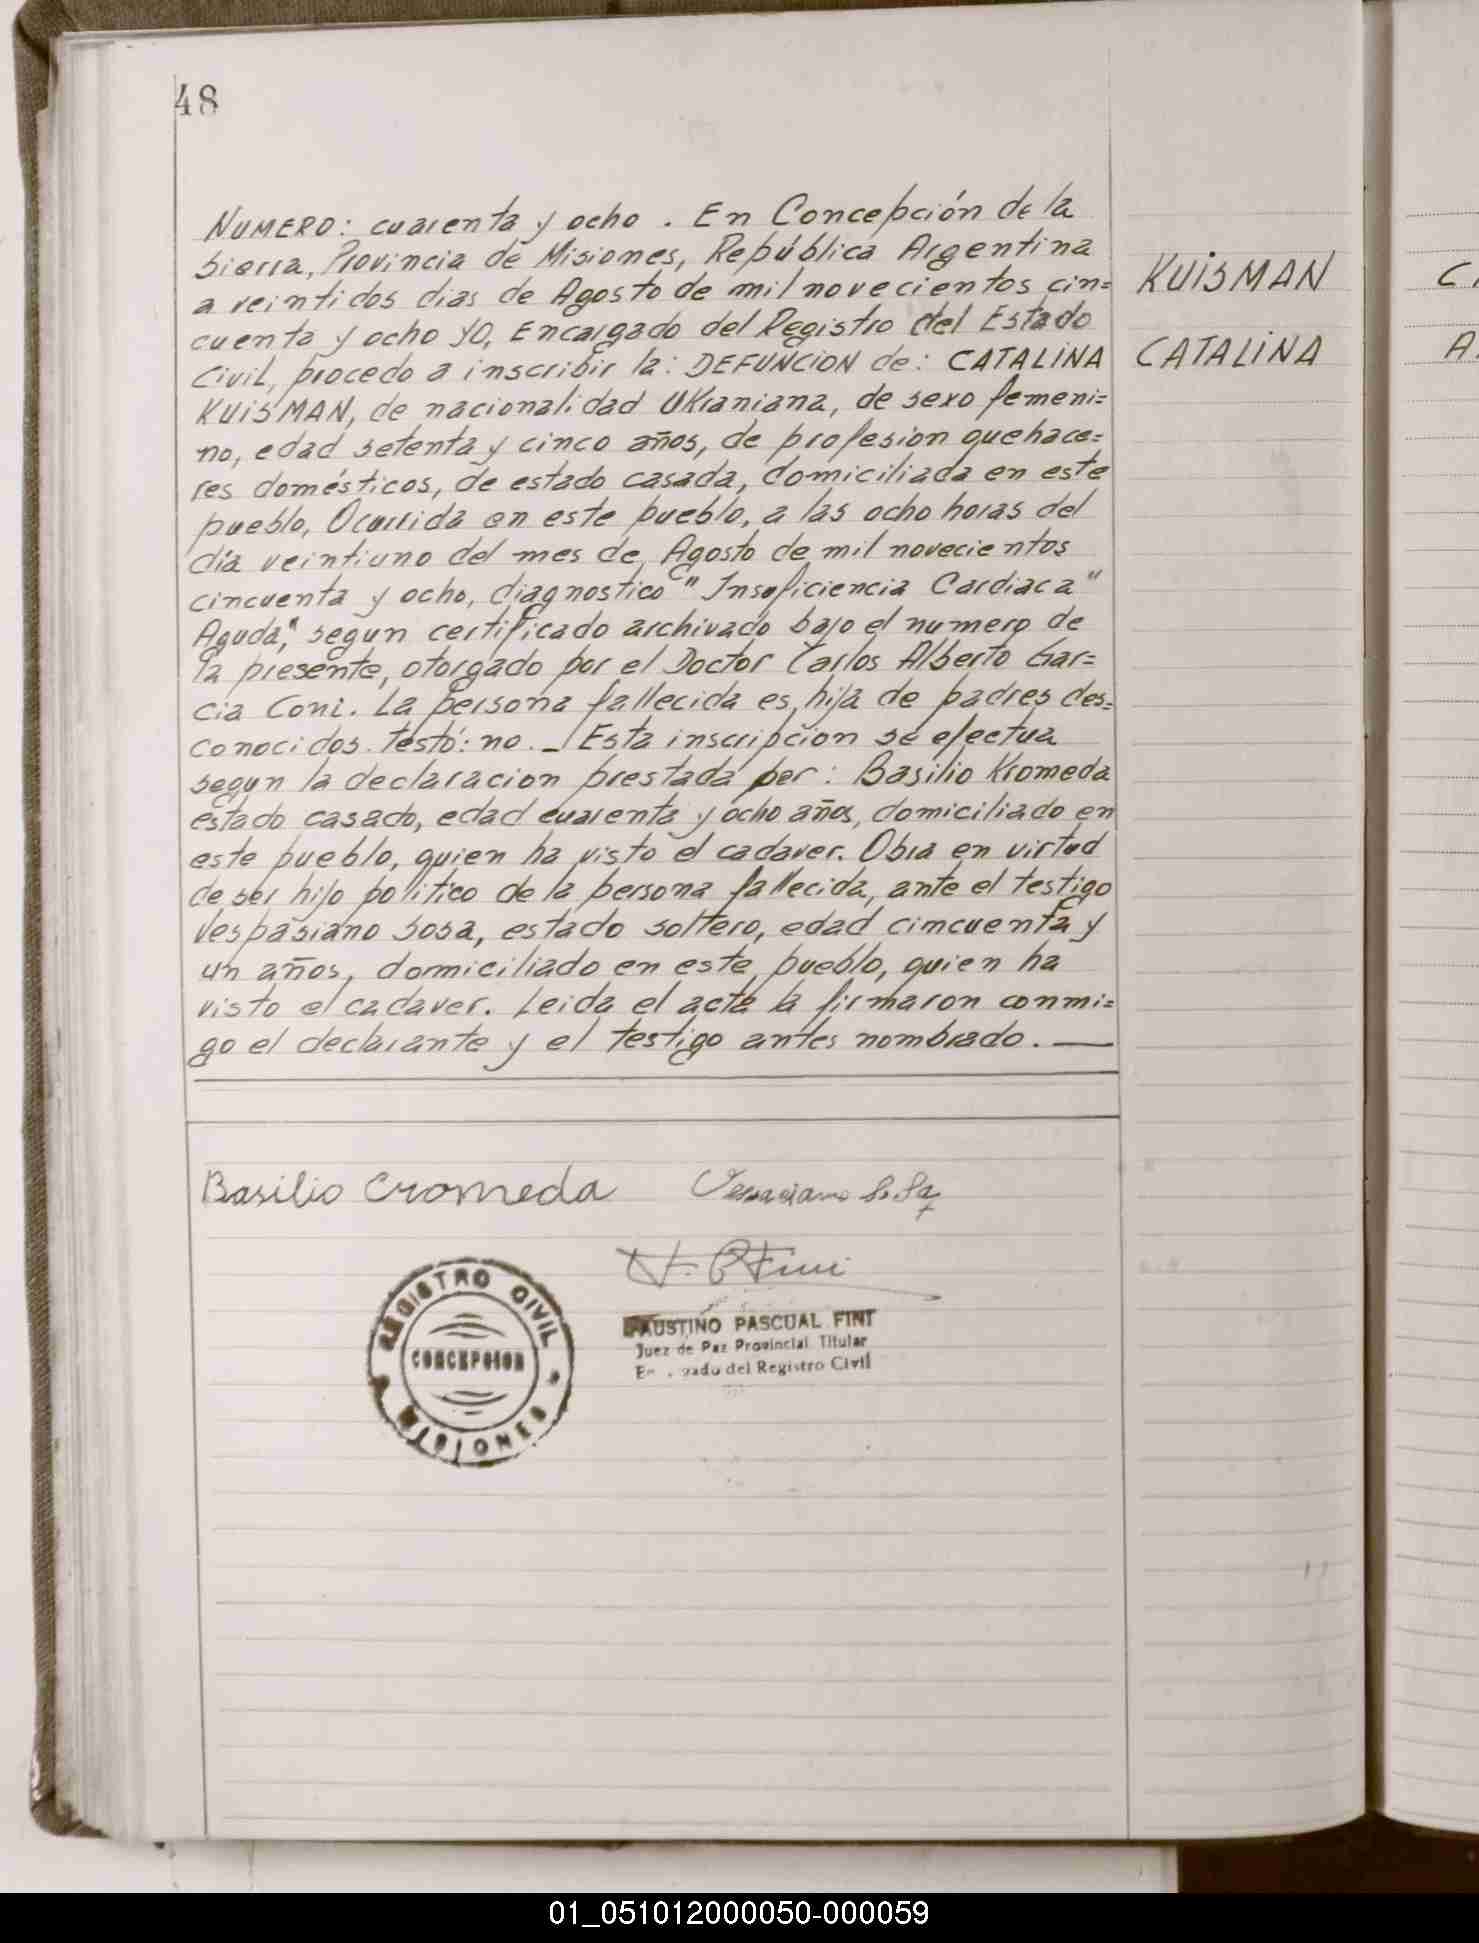 48
NUMERO: cuarenta y ocho. En Concepción de la
Sierra, Provincia de Misiones, República Argentina
a veintidos dias de Agosto de mil novecientos cin=
cuenta y ocho YO, Encargado del Registro del Estado
Civil, procedo a inscribir la: DEFUNCION de: CATALINA
KUISMAN, de nacionalidad Ukraniana, de sexo femeni=
no, edad setenta y cinco años, de profesión quehace=
res domésticos, de estado casada, domiciliada en este
pueblo, Ocurrida en este pueblo, a las ocho horas del
día veintiuno del mes de Agosto de mil novecientos
cincuenta y ocho, diagnostico "Insuficiencia Cardiaca"
Aguda," segun certificado archivado bajo el numero de
la presente, otorgado por el Doctor Carlos Alberto Gar=
cia Coni. La persona fallecida es hija de padres des=
conocidos. testó: no._ Esta inscripción se efectua
segun la declaracion prestada por: Basilio Kromeda
estado casado, edad cuarenta y ocho años, domiciliado en
este pueblo, quien ha visto el cadaver. Obra en virtud
de ser hijo politico de la persona fallecida, ante el testigo
Vespasiano Sosa, estado soltero, edad cimcuenta y
un años, domiciliado en este pueblo, quien ha
visto el cadaver. Leida el acta la firmaron conmi=
go el declarante y el testigo antes nombrado. —
KUISMAN
CATALINA
C
A.
Basilio Cromeda
REGISTRO CIVIL
CONCEPCION
MISIONES
FAUSTINO PASCUAL FINI
Juez de Paz Provincial Titular
del Registro Civil
01_051012000050-000059